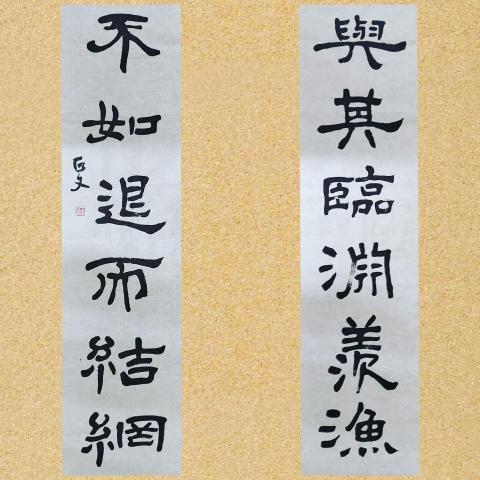 與其臨淵羨漁
不如退而結網
石文